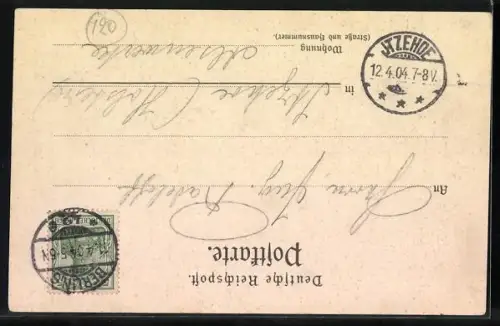 Deutsche Reichspost.
Postkarte.
An Herrn Ing.
in Itzehoe (Holstein)
Wohnung
(Straße und Hausnummer)
Alsenwerke
ITZEHOE
12.4.04.7-8V.
BERLIN
120